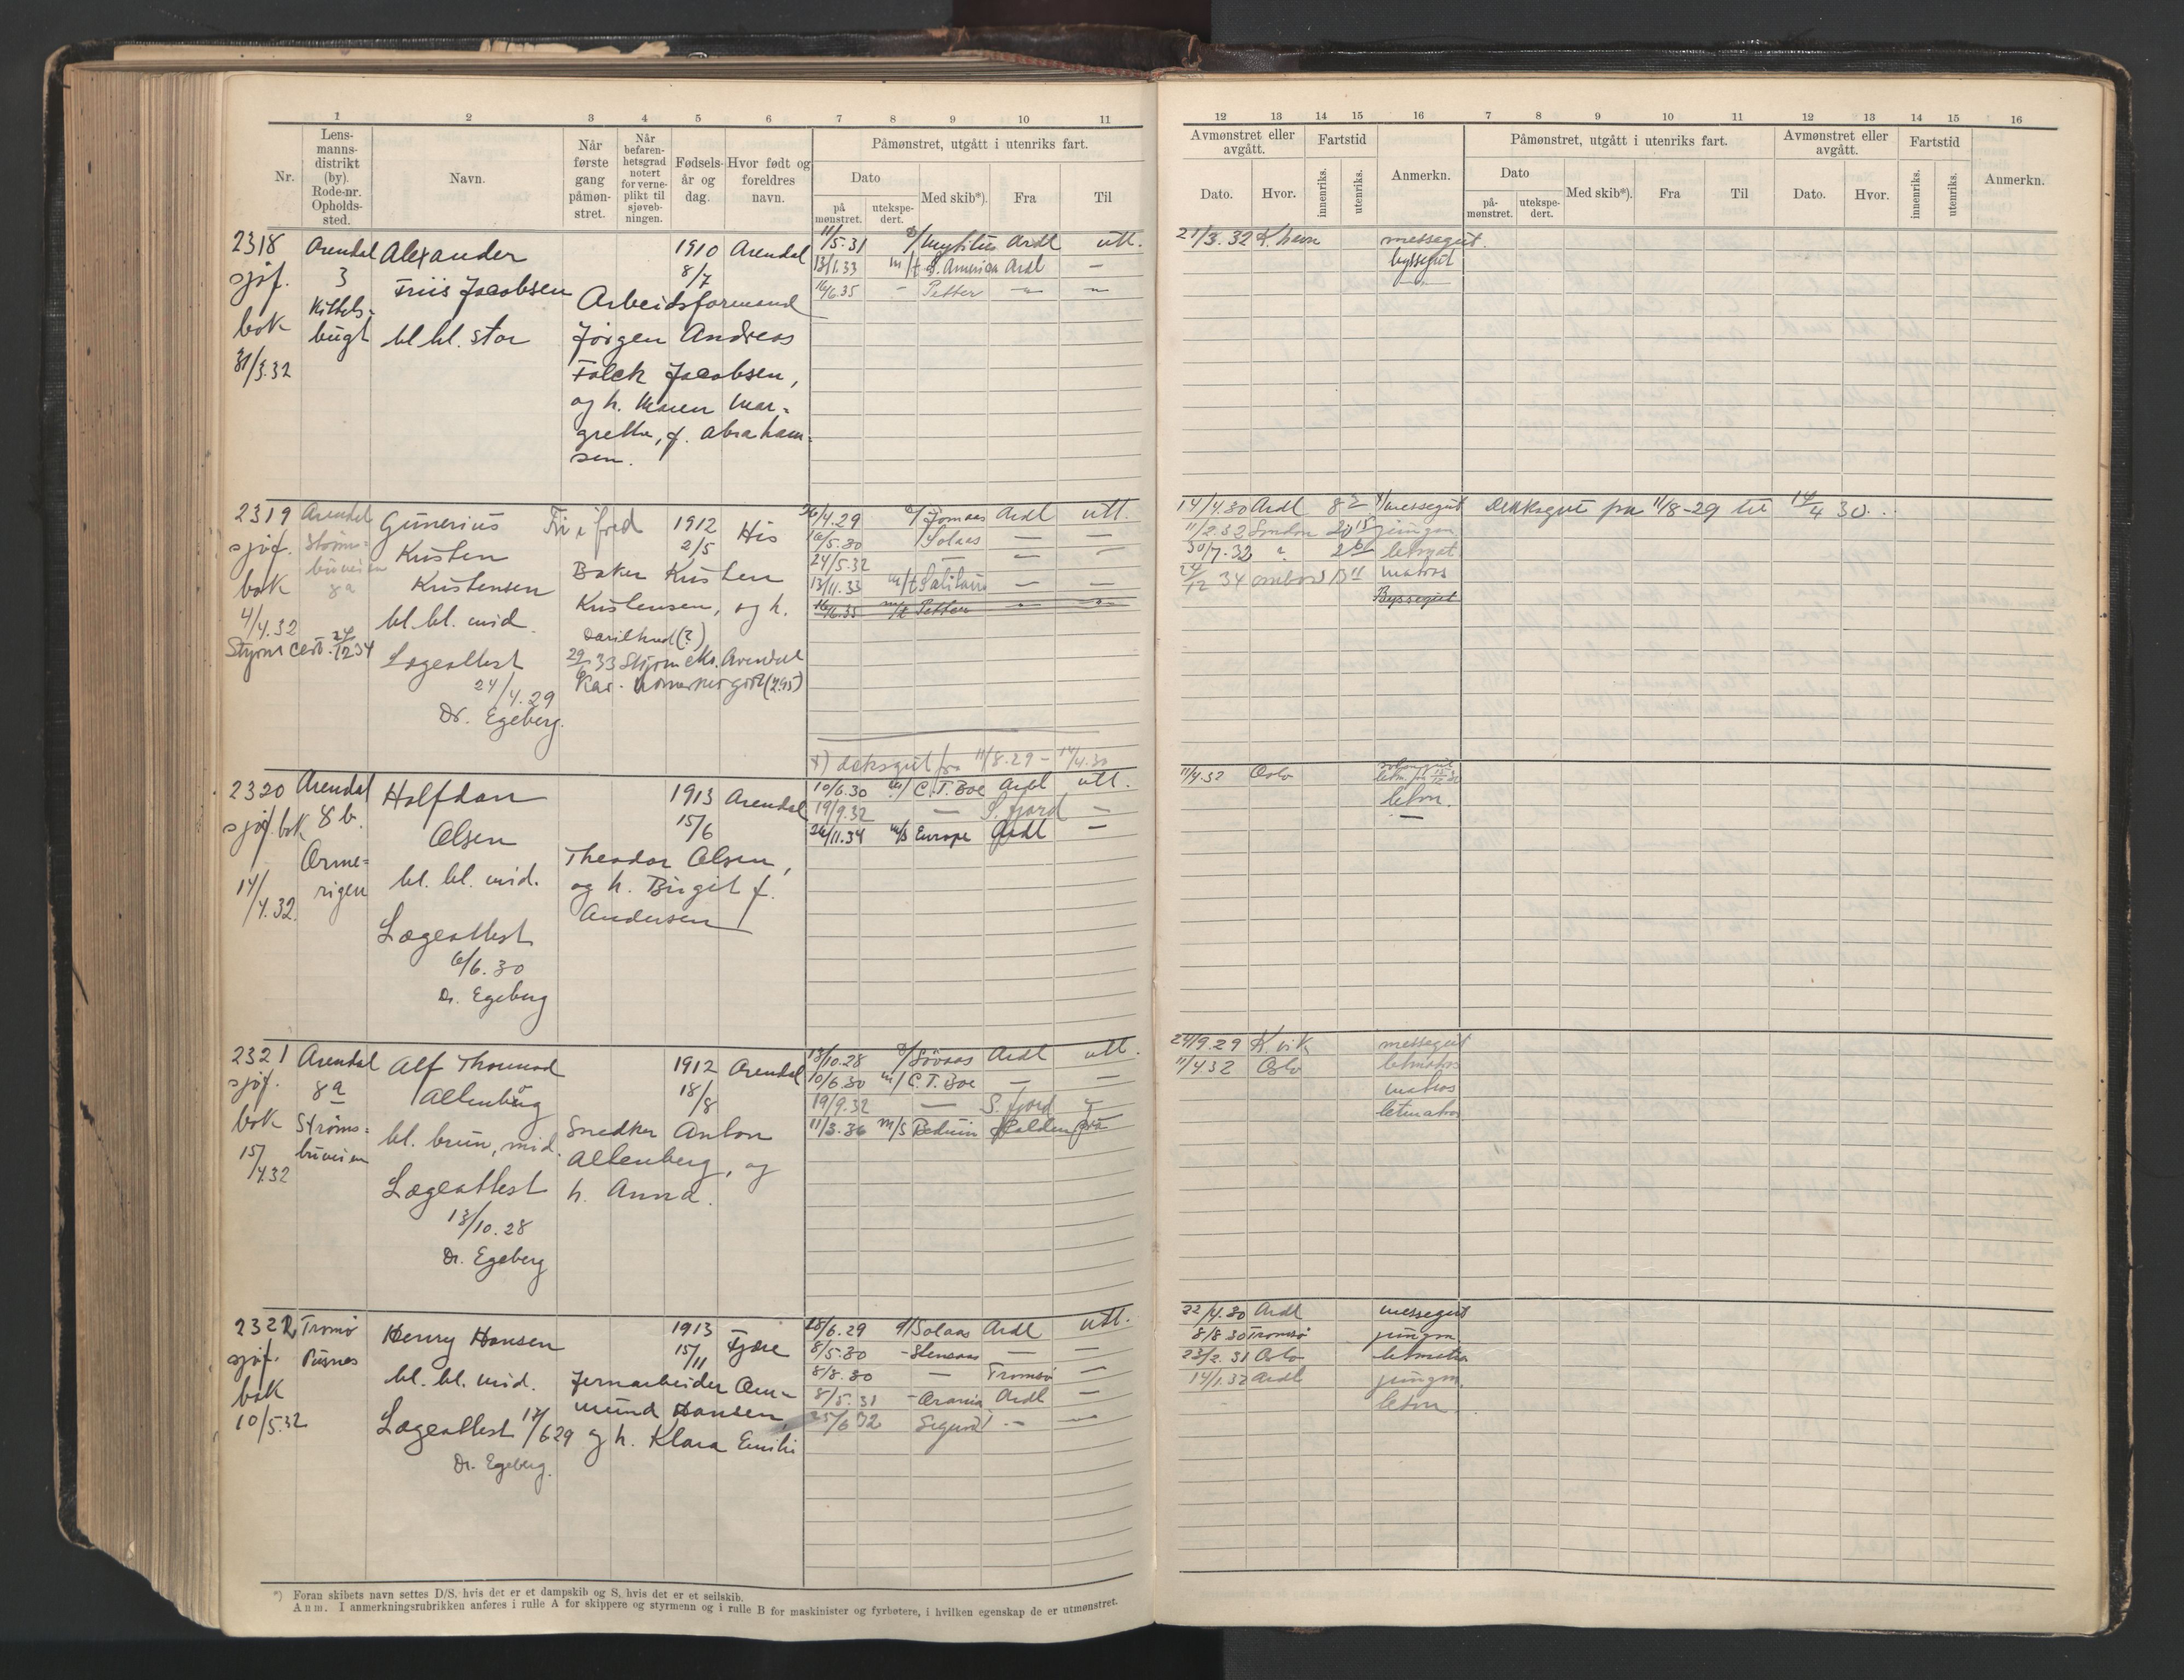 1 2 3 4 5 6 7 8 9 10 11
Nr.
Lens-
manns-
distrikt
(by).
Rode-nr.
Opholds-
sted.
Navn.
Når
første
gang
påmøn-
stret.
Når
befaren-
hetsgrad
notert
for verne-
plikt til
sjøveb-
ningen.
Fødsels-
år og
dag.
Hvor født og
foreldres
navn.
Påmønstret, utgått i utenriks fart.
Dato
på
mønstret.
utekspe-
dert.
Med skib*).
Fra
Til
2318 Arendal Alexander 1910 Arendal 11/5.31 Ardl utl.
sjøf. 3 Friis Jacobsen 8/7 13/1.33 m/t S. America Ardl —
bok bugt bl. bl. stor Arbeidsformand 16/6.35 - Petter — —
31/3.32 Jørgen Andreas
Falck Jacobsen,
og h. Maren Mar-
grethe, f. Abraham-
sen.
2319 Arendal Gunerius Fri i fred 1912 His 26/4.29 Ardl utl.
sjøf. Kristen 2/5 Solaas — —
bok 8a Kristensen Baker Kristen 24/5.32 — — —
4/4.32 bl. bl. mid. Kristensen, og h. 13/11.33 m/t — —
Lægeattest 16/6.35 m/t Petter — —
24/4.29
Dr. Egeberg.
x) deksgut fra 11/8.29 - 14/4.30
2320 Arendal Halfdan 1913 Arendal 10/6.30 m/ C.T. Boe Ardl utl.
sjøf. bok 8 b. Olsen 15/6 19/9.32 — S. fjord —
bl. bl. mid. 26/11.34 m/s Europe Ardl —
14/4.32. Theodor Olsen,
og h. Birgit f.
Andersen
Lægeattest
6/6.30
Dr. Egeberg
2321 Arendal Alf Thormod 1912 Arendal 13/10.28 Ardl utl.
sjøf. 8a Altenbürg 18/8 10/6.30 m/ C.T. Boe — —
bok Strøms- bl. brun, mid. Snedker Anton 19/9.32 — S. fjord
15/4.32 bruveien Altenberg, og 11/3.36 m/s Beduin Halden
Lægeattest h. Anna.
13/10.28
Dr. Egeberg
2322 Tromø Henry Hansen 1913 Fjære 28/6.29 Solaas Ardl utl.
sjøf. Pusnes 15/11 8/5.30 - Stensaas — —
bok bl. bl. mid. Jernarbeider Om- 8/8.30 — Tromsø —
10/5.32 mund Hansen, 8/5.31 - Arania Ardl —
Lægeattest 17/6 29 og h. Klara Emilie 25/6 32 Sigurd — —
Dr. Egeberg.
*) Foran skibets navn settes D/S, hvis det er et dampskib og S, hvis det er et seilskib.
Anm. I anmerkningsrubrikken anføres i rulle A for skippere og styrmenn og i rulle B for maskinister og fyrbøtere, i hvilken egenskap de er utmønstret.
12 13 14 15 16 7 8 9 10 11 12 13 14 15 16
Avmønstret eller
avgått.
Dato.
Hvor.
Fartstid
innenriks.
utenriks.
Anmerkn.
Påmønstret, utgått i utenriks fart.
Dato
på-
mønstret.
utekspe-
dert.
Med skib*).
Fra
Til
Avmønstret eller
avgått.
Dato.
Hvor.
Fartstid
innenriks.
utenriks.
Anmerkn.
21/3.32 K. havn messegut.
byssegut
14/4.30 Ardl x/messegut Dekksgut fra 11/8-29 til 14/4 30.
11/2.32 London jungm
30/7.32 " letmat
24/12 34 matros
Byssegut
11/4.32 Oslo
letm.
24/9.29 K. vik messegut
11/4 32 Oslo letmatros
matros
letmatros
22/4.30 Ardl messegut
8/8.30 Tromsø jungm
23/2.31 Oslo letmatro
14/1.32 Ardl jungm.
letm.